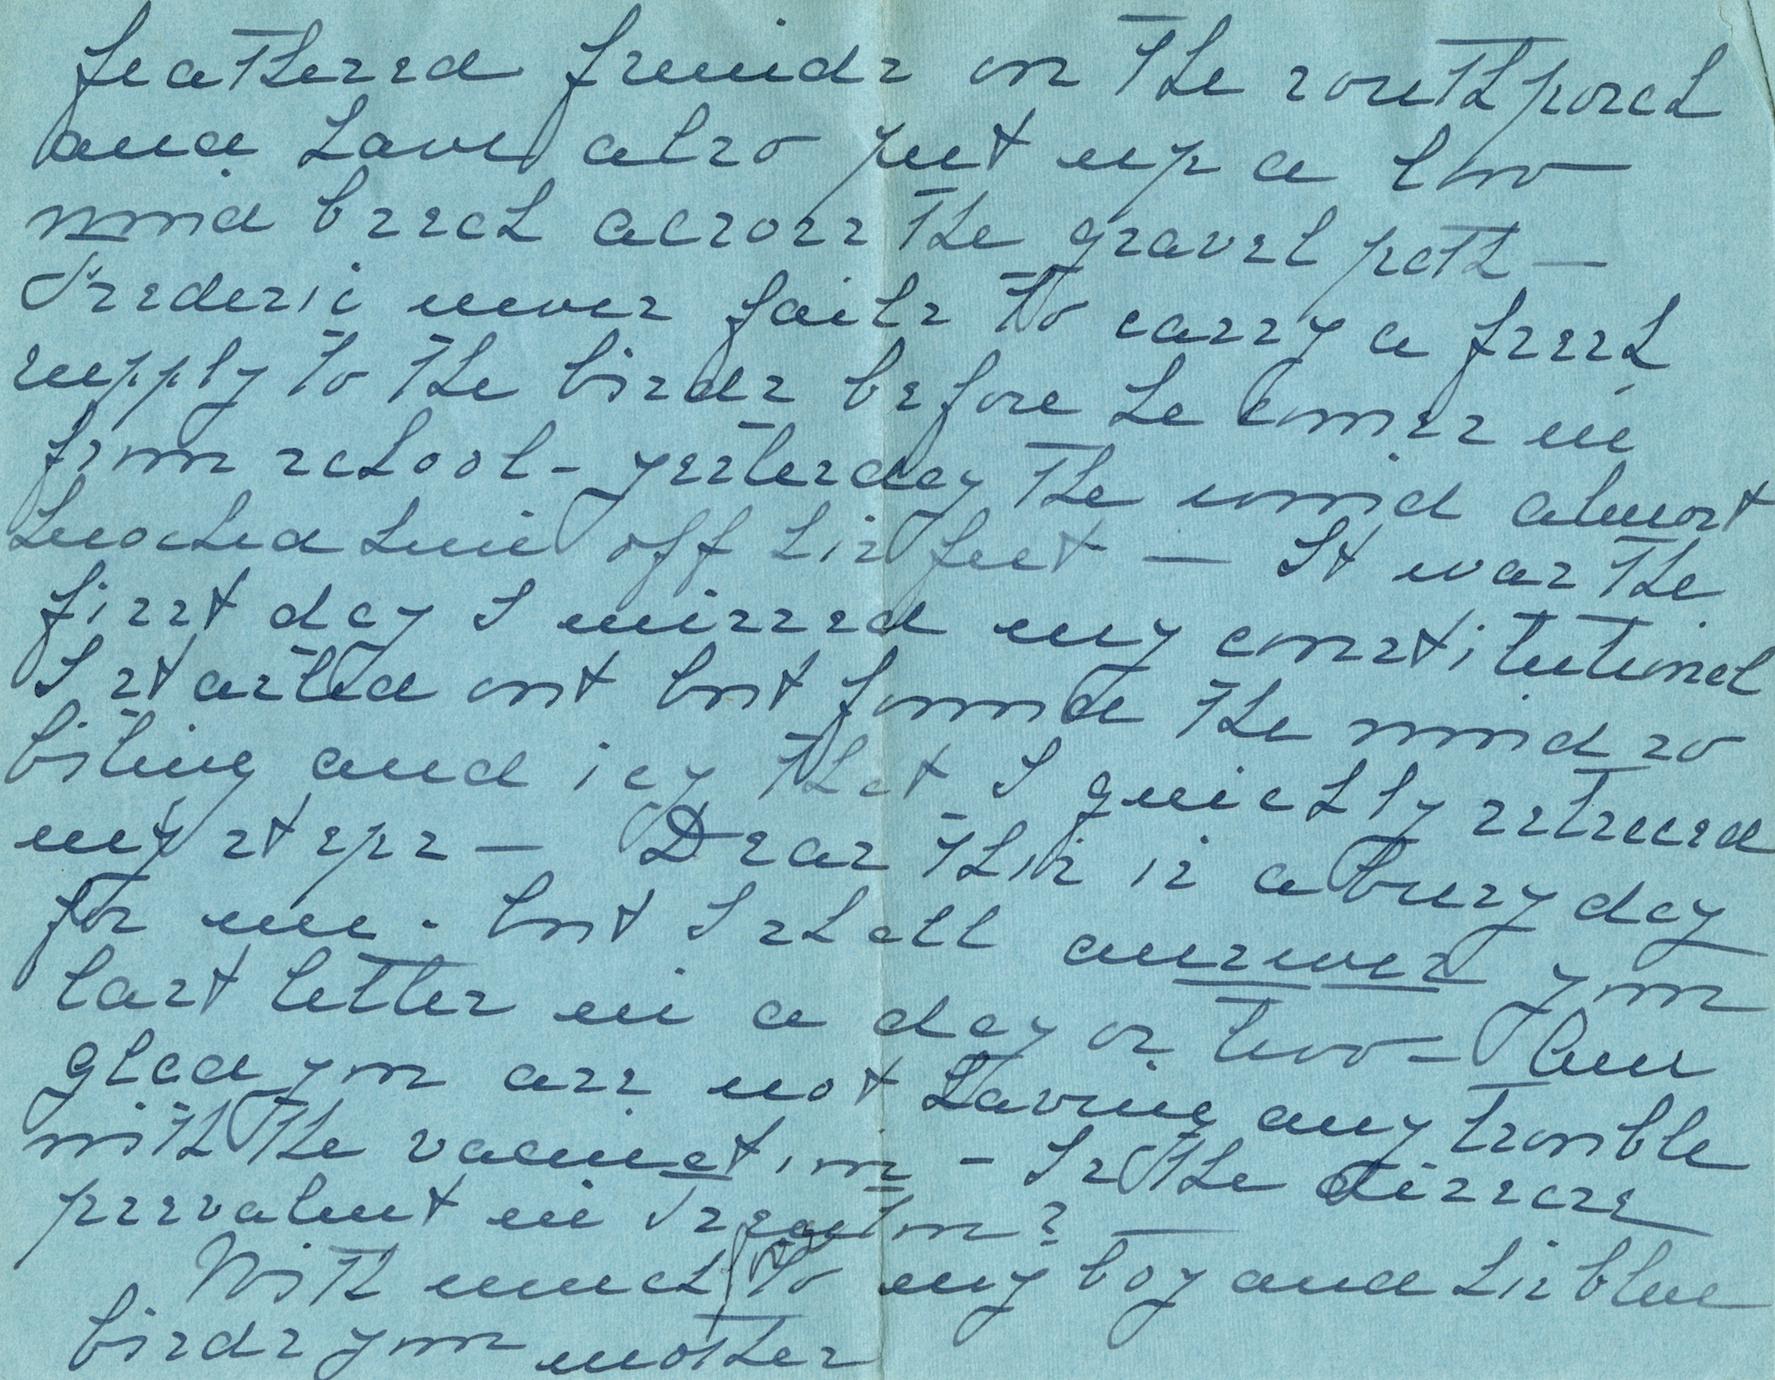 feathered friends on the south porch
and have also put up a two
wind breck across the gravel path —
Frederic never fails to carry a fresh
supply to the birds before he comes in
from school - yesterday the wind almost
knocked him off his feet — It was the
first day I missed my constitutional
I started out but found the wind so
biting and icy that I quickly retraced
my steps — Dear this is a busy day
for me. but I shall answer your
last letter in a day or two — Am
glad you are not having any trouble
with the vaccination - Is the disease
prevalent in Trenton? —
With much to my boy and his blue
birds your mother